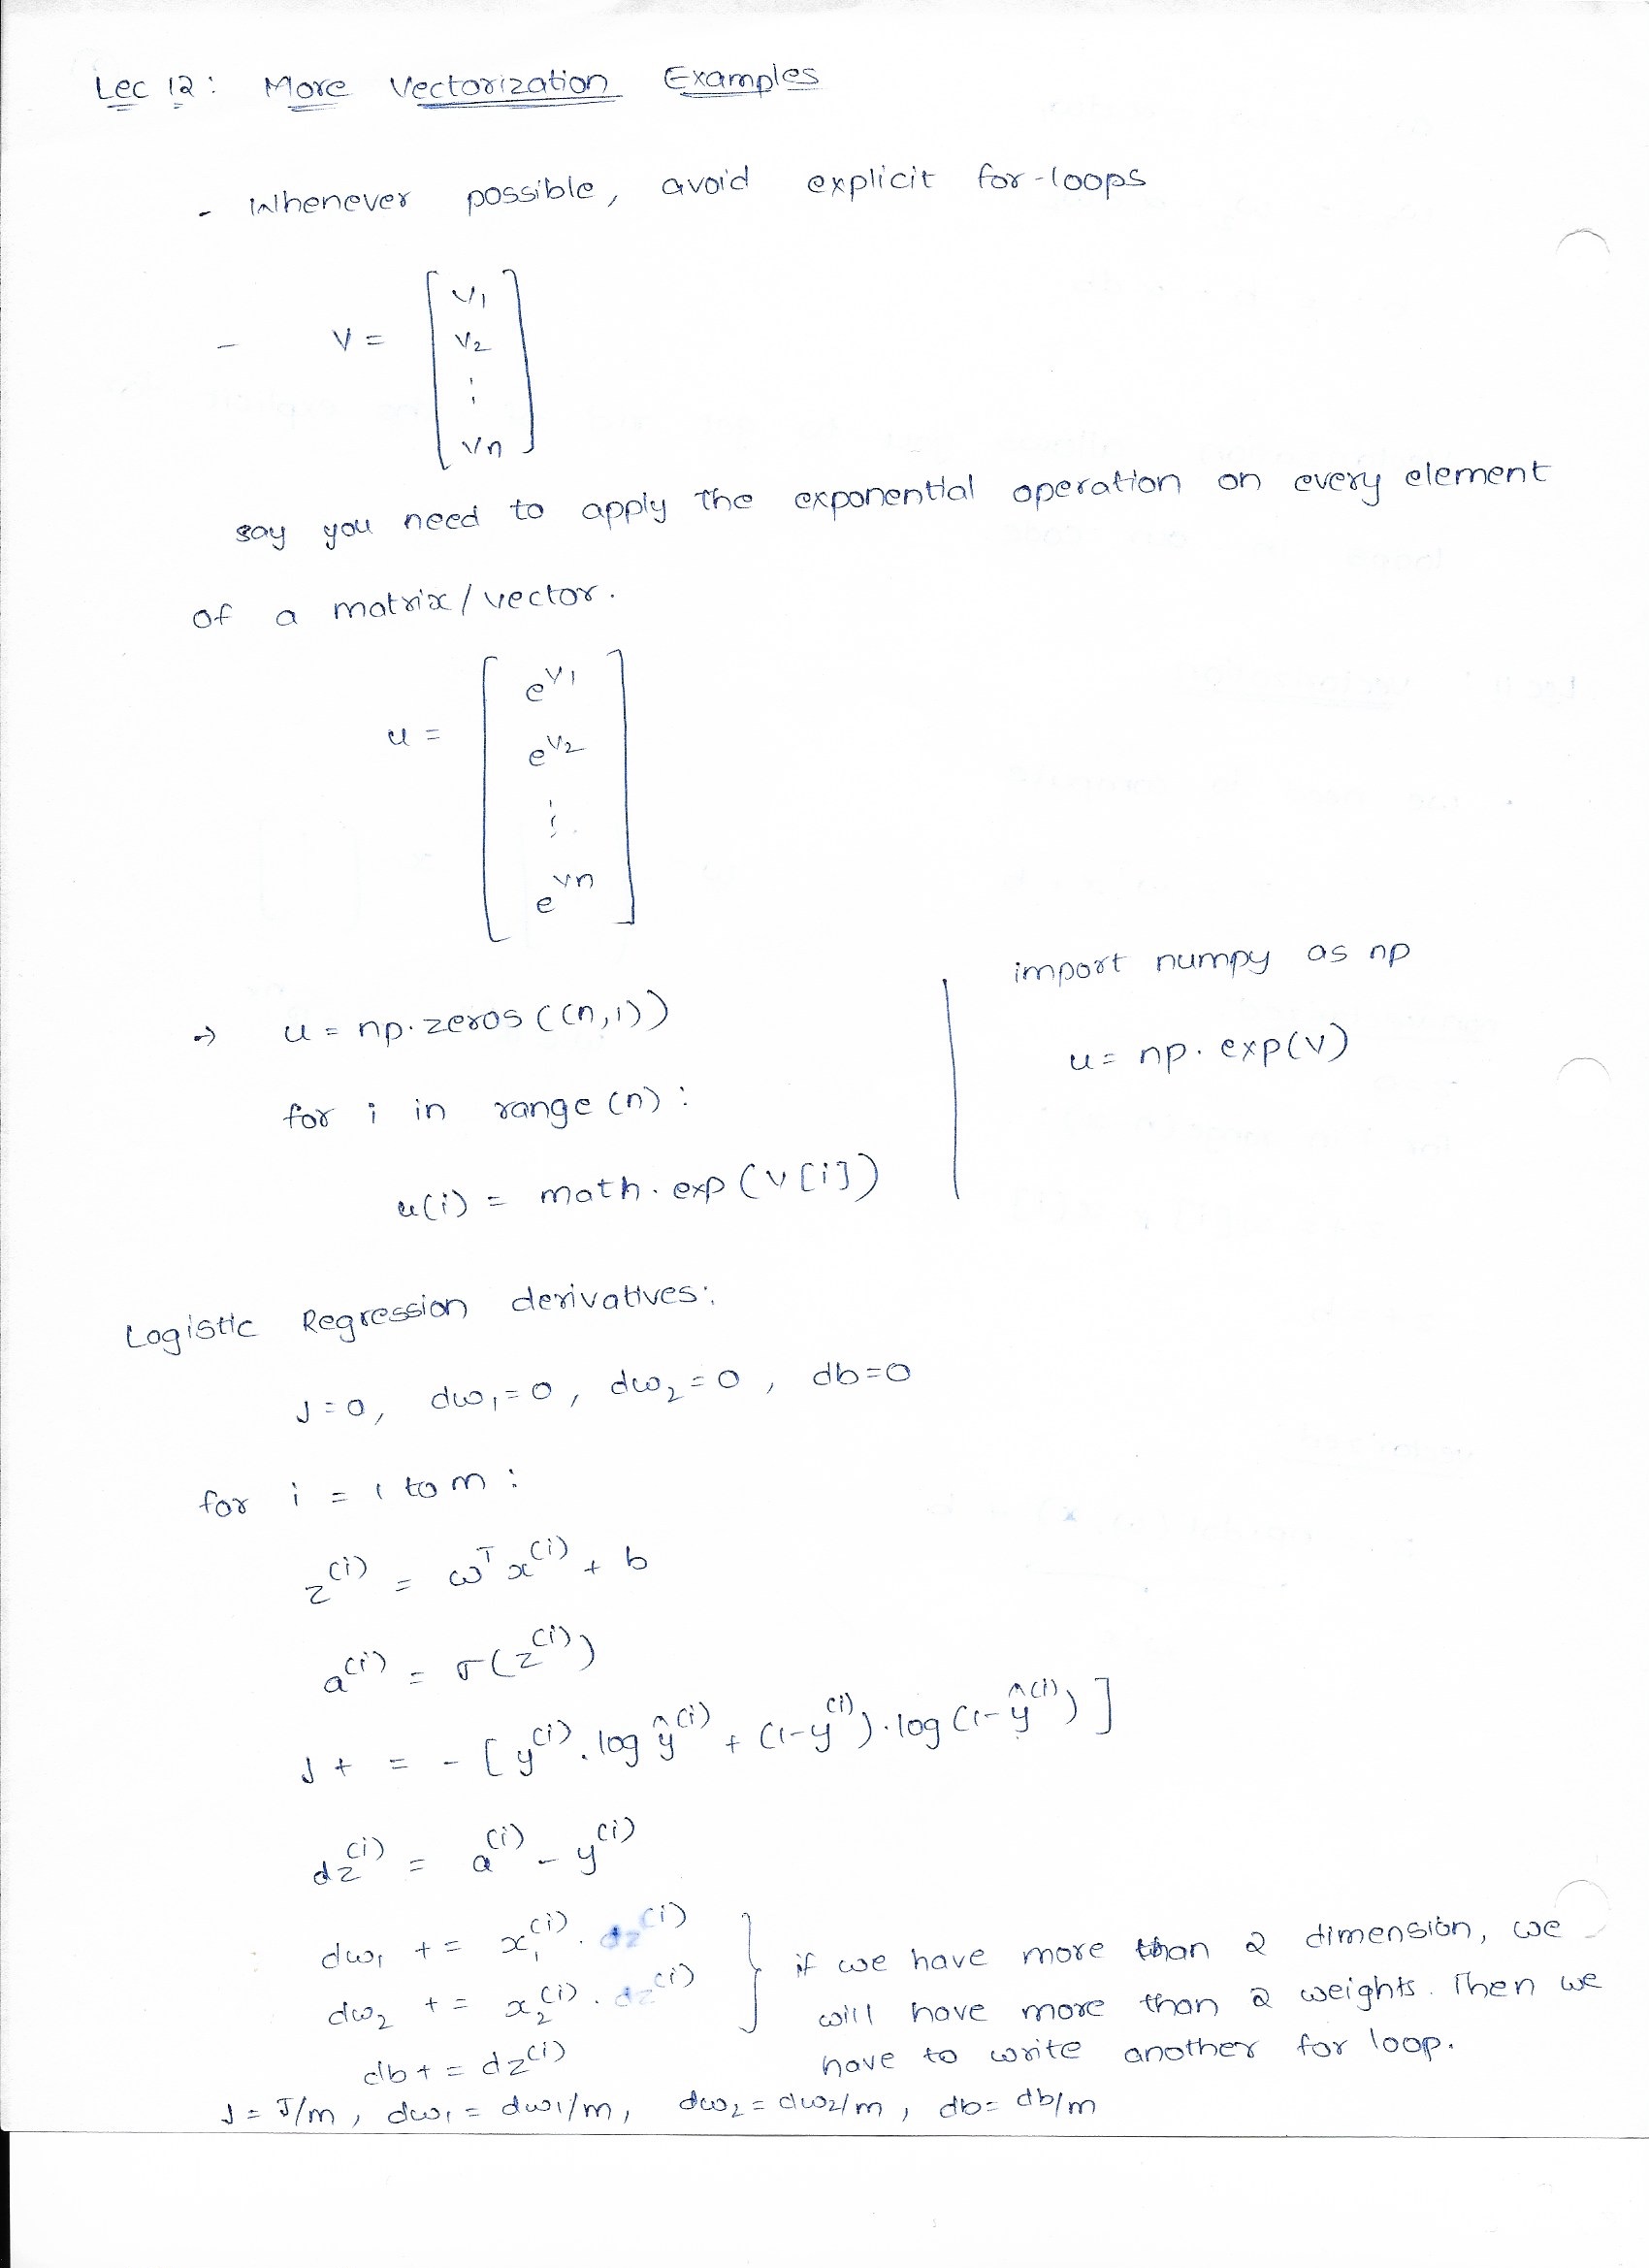 Lec 12: More Vectorization Examples
- Whenever possible, avoid explicit for-loops
- V = [ V₁
V₂
⋮
Vn ]
say you need to apply the exponential operation on every element
of a matrix/vector.
u = [ e^V₁
e^V₂
⋮
e^Vn ]
→ u = np.zeros((n,1))
for i in range(n):
u(i) = math.exp(v[i])
import numpy as np
u = np.exp(v)
Logistic Regression derivatives:
J=0, dw₁=0, dw₂=0, db=0
for i = 1 to m:
z⁽ⁱ⁾ = ωᵀx⁽ⁱ⁾ + b
a⁽ⁱ⁾ = σ(z⁽ⁱ⁾)
J + = - [y⁽ⁱ⁾.log ŷ⁽ⁱ⁾ + (1-y⁽ⁱ⁾).log(1-ŷ⁽ⁱ⁾)]
dz⁽ⁱ⁾ = a⁽ⁱ⁾ - y⁽ⁱ⁾
dw₁ += x₁⁽ⁱ⁾.dz⁽ⁱ⁾
dw₂ += x₂⁽ⁱ⁾.dz⁽ⁱ⁾
db+ = dz⁽ⁱ⁾
if we have more than 2 dimension, we
will have more than 2 weights. Then we
have to write another for loop.
J = J/m, dw₁ = dw₁/m, dw₂ = dw₂/m, db = db/m